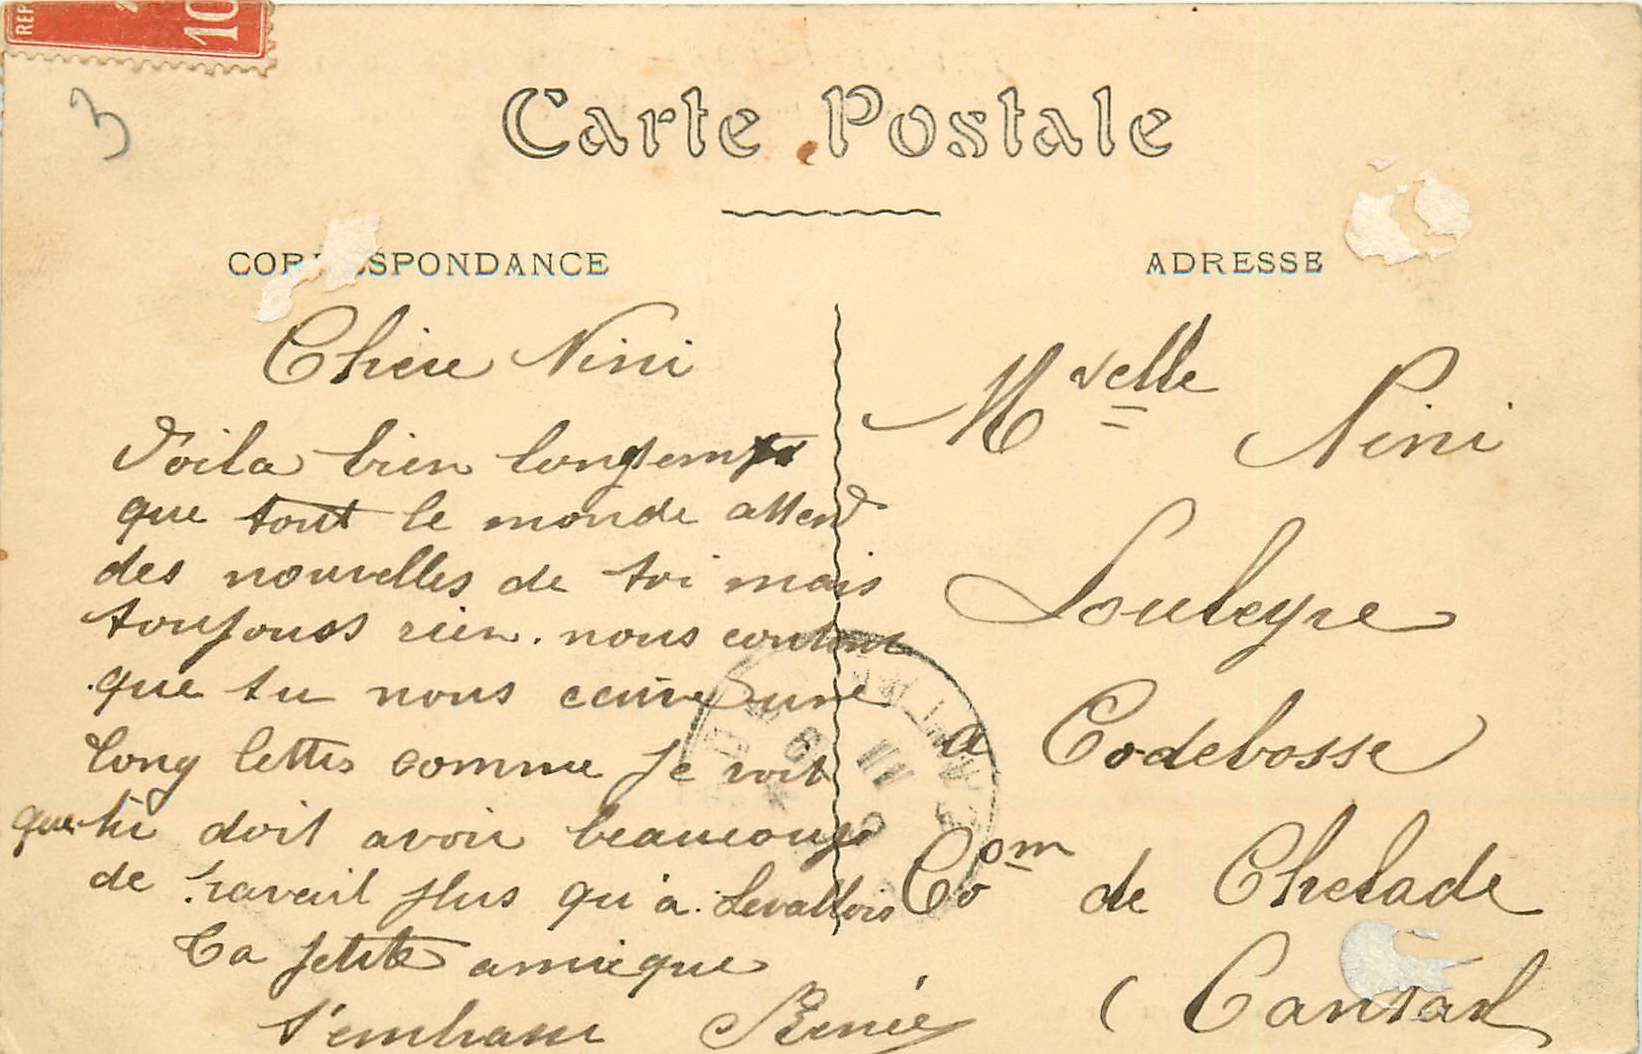 REP
10
3
Carte Postale
CORRESPONDANCE
Chère Nini
Voila bien longtemps
que tout le monde attend
des nouvelles de toi mais
toujours rien. nous contons
que tu nous ecrive une
long lettre comme je voit
que tu doit avoir beaucoup
de travail plus qu'a Levallois
Ta petite amie que
t'embrasse Renée
ADRESSE
Mvelle Nini
Souleyre
a Codebosse
Com de Chelade
(Cantal